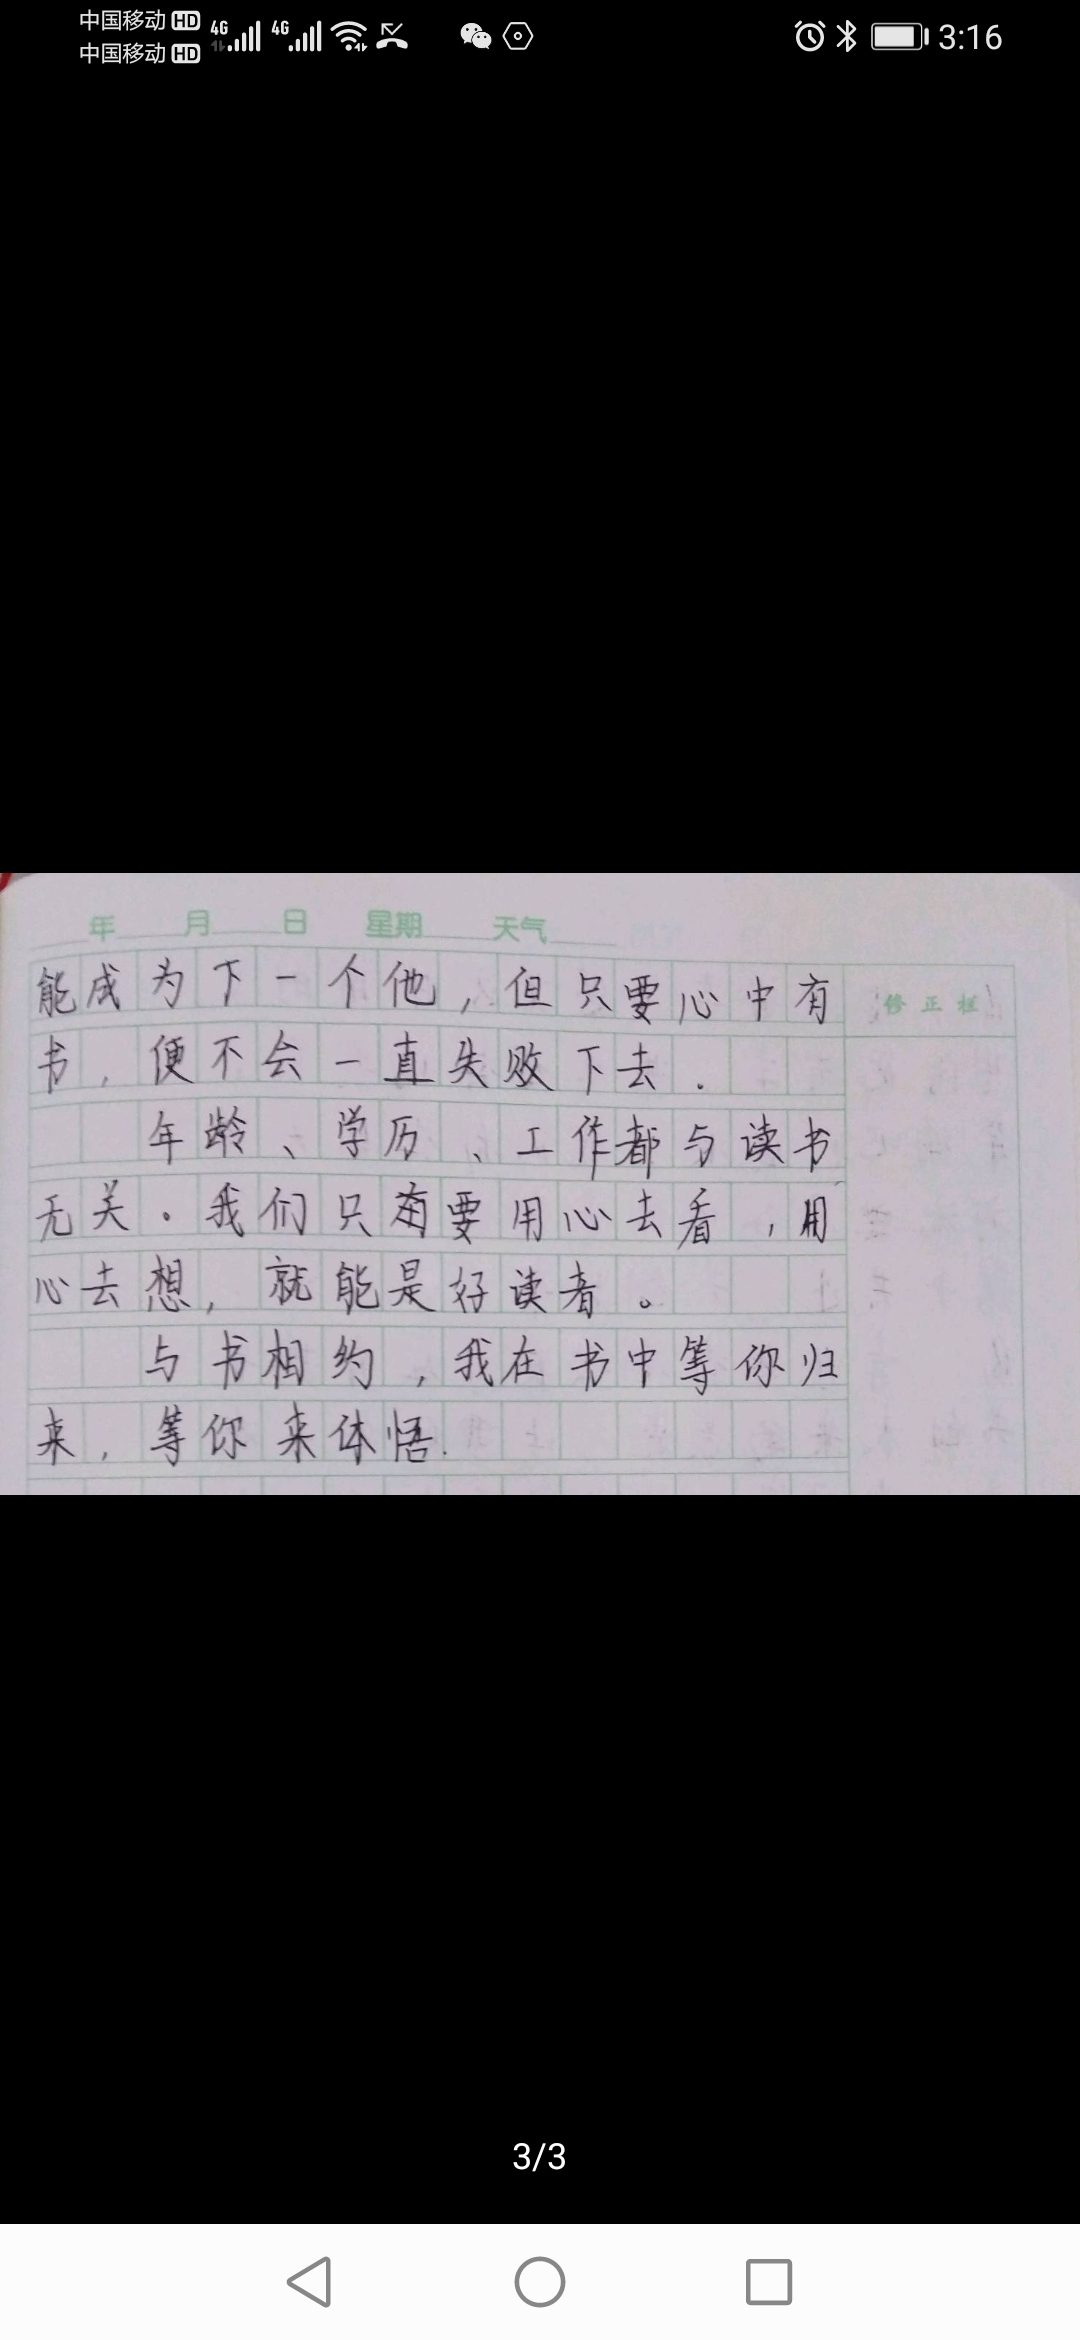 中国移动 HD 4G 4G 3:16
中国移动 HD
年 月 日 星期 天气
能成为下一个他，但只要心中有
修正栏
书，便不会一直失败下去.
年龄、学历、工作都与读书
无关。我们只要用心去看，用
心去想，就能是好读者。
与书相约，我在书中等你归
来，等你来体悟.
3/3